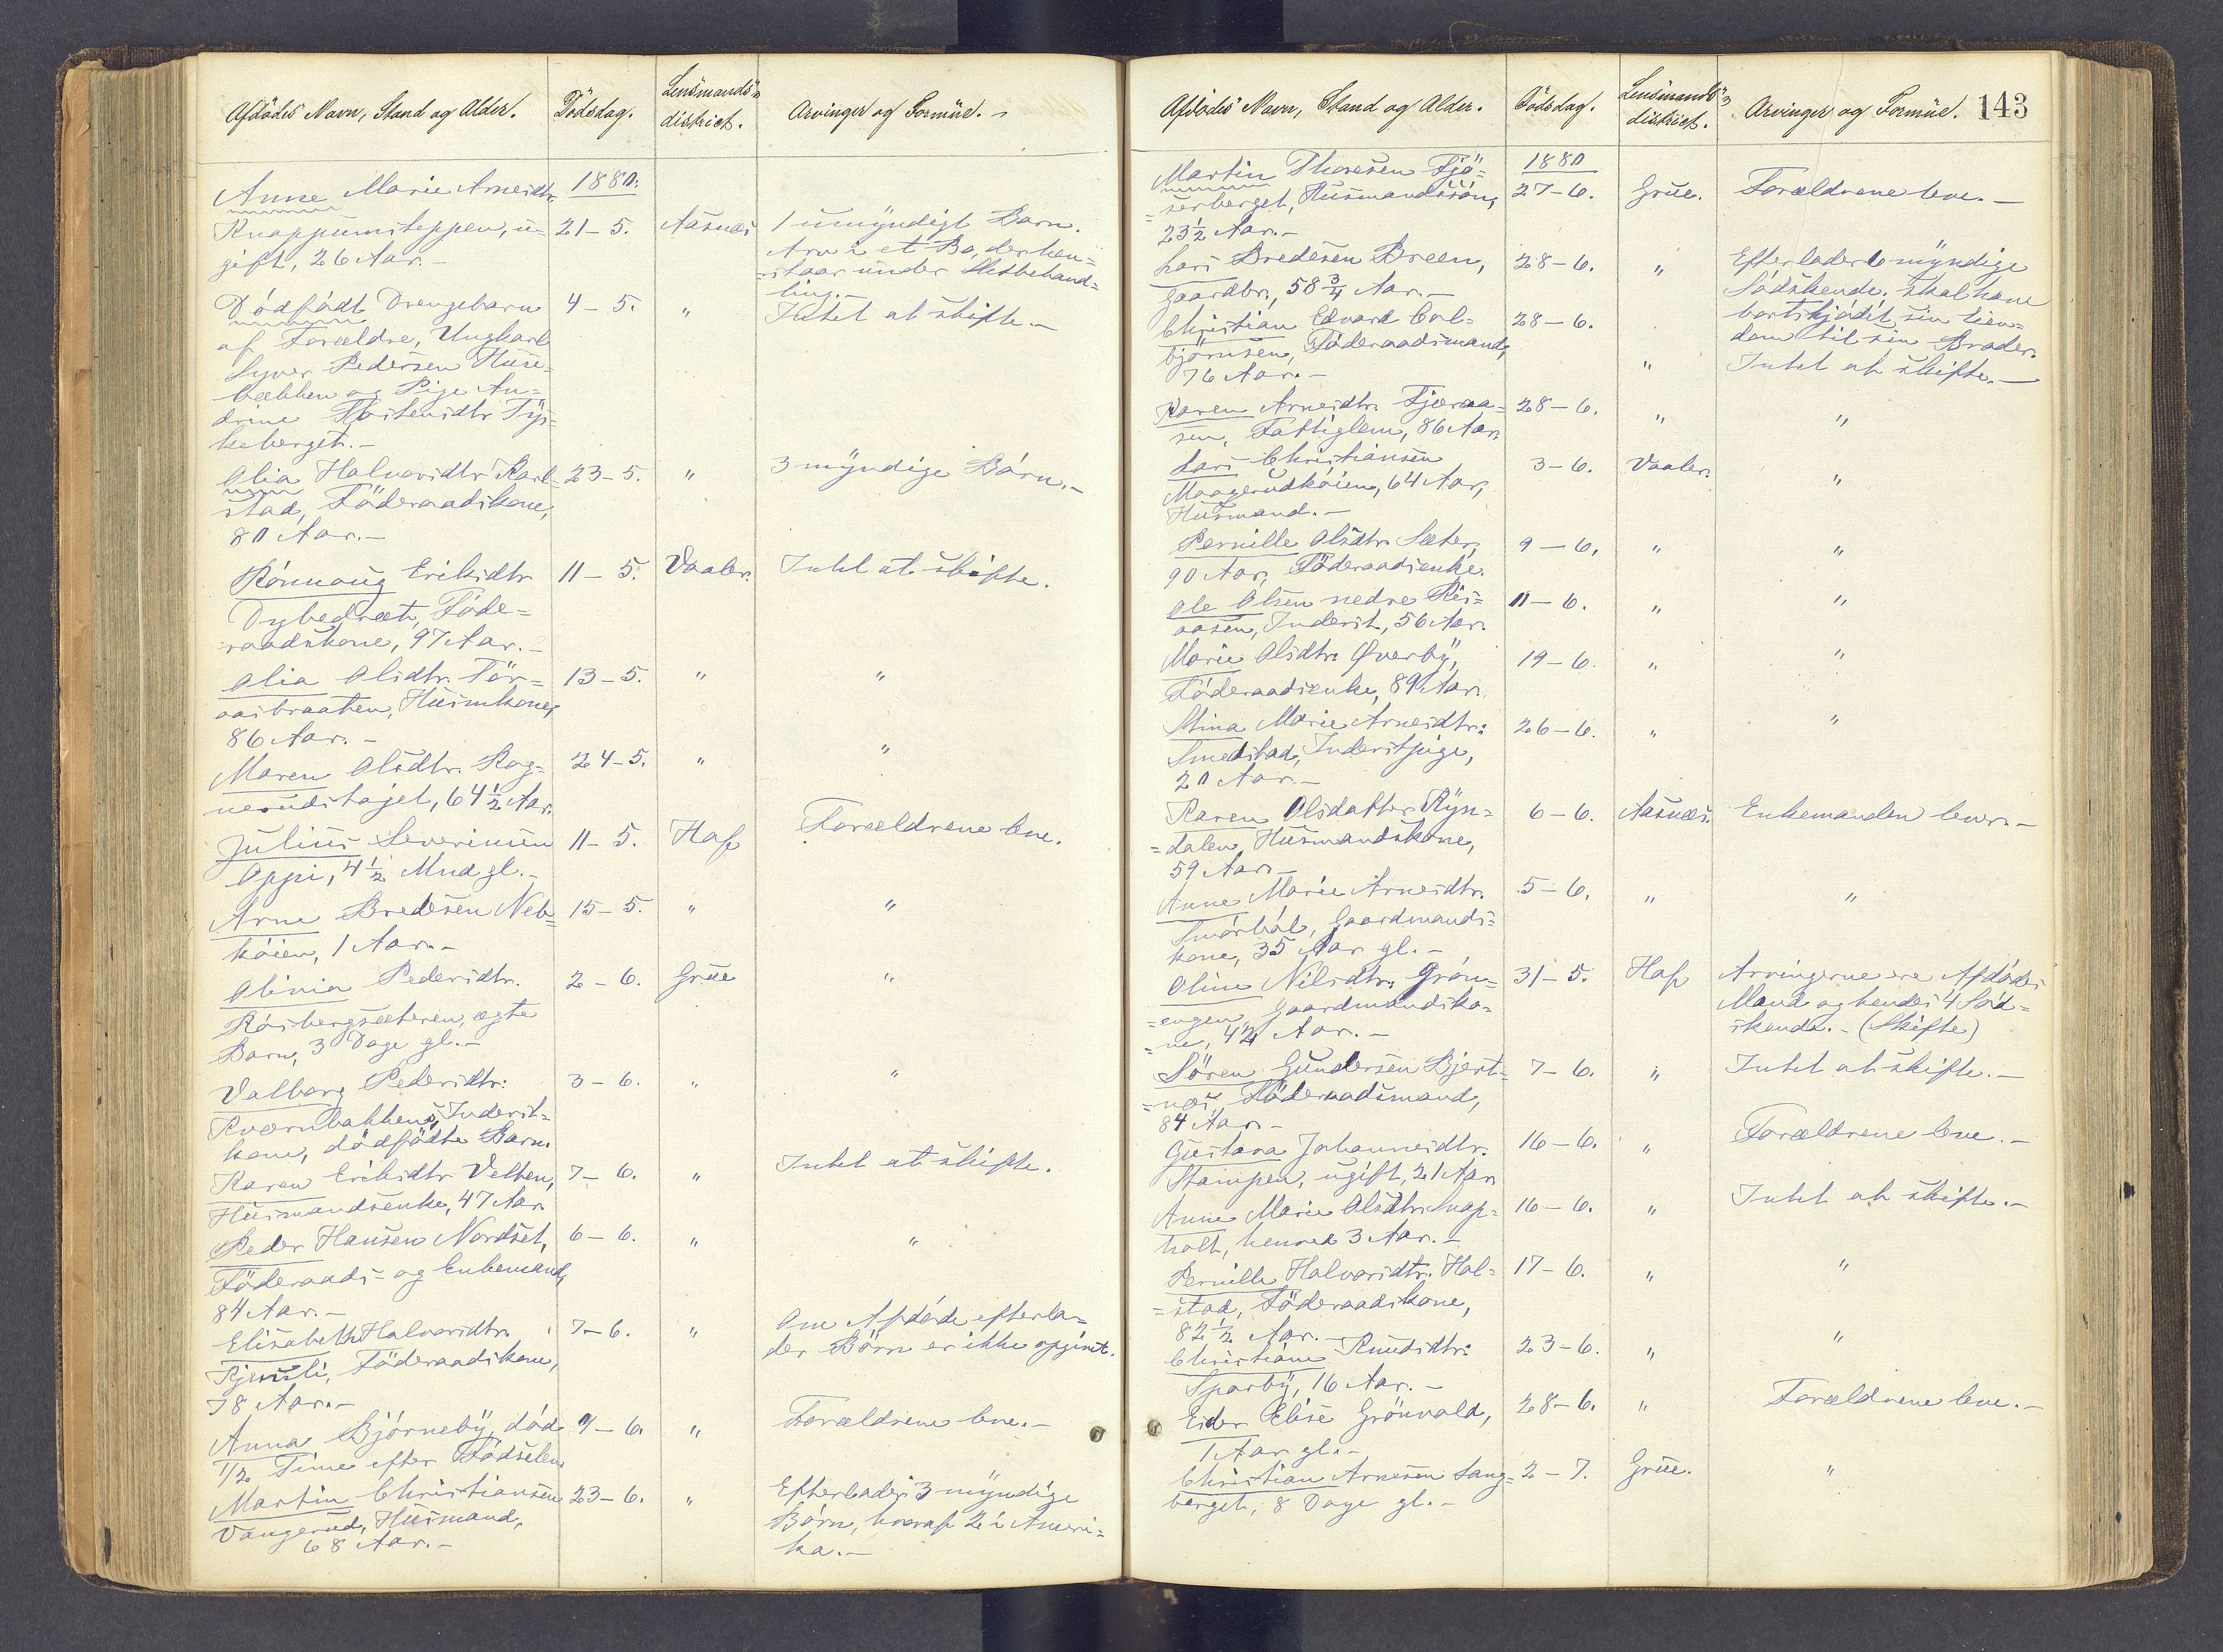 Afdødes Navn, Stand og Alder.
Dødsdag.
Lensmands-
district.
Arvinger og Formue.
1880.
Anne Marie Arnesdtr.
Knappumsteppen, u-
gift, 26 Aar.-
21-5.
Aasnæs
1 umyndigt Barn.
Arv i et Bo, der hen-
staar under Skiftebehand-
ling.-
Dødfødt Drengebarn
af Forældre, Ungkarl
Syver Pedersen Huse-
bækken og Pige An-
drine Thostensdtr Tys-
keberget.-
4-5.
"
Intet at skifte.-
Olia Halvorsdtr Karl-
stad, Føderaadskone,
80 Aar.-
23-5.
"
3 myndige Børn.-
Rønnaug Eriksdtr
Dybedræt, Føde-
raadskone, 97 Aar.-
11-5.
Vaaler.
Intet at skifte.
Olia Olsdtr. Tør-
aasbraaten, Husmkone,
86 Aar.-
13-5.
"
"
Maren Olsdtr. Rog-
nerudstajet, 64 1/2 Aar.
24-5.
"
"
Julius Severinsen
Oppi, 4 1/2 Mnd gl.-
11-5.
Hof
Forældrene leve.
Arne Bredesen Neb-
køien, 1 Aar.-
15-5.
"
"
Olinia Pedersdtr.
Røsbergsæteren, ægte
Barn, 3 Dage gl.-
2-6.
Grue
"
Valborg Pedersdtr.
Kværnbakkens, Inderst-
kone, dødfødte Barn.
3-6.
"
"
Karen Eriksdtr Velten,
Husmandsenke, 47 Aar
7-6.
"
Intet at skifte.
Peder Hansen Nordset,
Føderaads- og Enkemand,
84 Aar.-
6-6.
"
"
Elisabeth Halvorsdtr.
Kjensli, Føderaadskone,
78 Aar.-
7-6.
"
Om Afdøde efterla-
der Børn er ikke opgivet.
Anna Bjørneby, død
1/2 Time efter Fødselen
9-6.
"
Forældrene leve.-
Martin Christiansen
Vangerud, Husmand,
68 Aar.-
23-6.
"
Efterlader 3 myndige
Børn, hvoraf 2 i Ameri-
ka.-
Afdødes Navn, Stand og Alder.
Dødsdag.
Lensmands-
district.
Arvinger og Formue.
143
1880
Martin Thoresen Fjø-
serberget, Husmandssøn,
23 1/2 Aar.-
27-6.
Grue.
Forældrene leve.-
Lars Bredesen Breen,
Gaardbr., 58 3/4 Aar.-
28-6.
"
Efterlader 6 myndige
Sødskende. Skal have
bortskjødet sin Eien-
dom til sin Broder.
Christian Edvard Col-
bjørnsen, Føderaadsmand,
76 Aar.-
28-6.
"
Intet at skifte.-
Karen Arnesdtr. Fjæraa-
sen, Fattiglem, 86 Aar.
28-6.
"
"
Lars Christiansen
Maagerudkøien, 64 Aar,
Husmand.-
3-6.
Vaaler.
"
Pernille Olsdtr. Sæter,
90 Aar, Føderaadsenke.
9-6.
"
"
Ole Olsen nedre Ris-
aasen, Inderst, 56 Aar.
11-6.
"
"
Marie Olsdtr. Øverby,
Føderaadsenke, 89 Aar.
19-6.
"
"
Mina Marie Arnesdtr.
Smedstad, Inderstpige,
20 Aar.-
26-6.
"
"
Karen Olsdatter Ryn-
dalen, Husmandskone,
59 Aar.-
6-6.
Aasnæs.
Enkemanden lever.-
Anne Marie Arnesdtr.
Smørhol, Gaardmands-
kone, 35 Aar gl.-
5-6.
"
"
Oline Nilsdtr. Grøn-
engen, Gaardmandsko-
ne, 42 Aar.-
31-5.
Hof
Arvingerne ere Afdødes
Mand og hendes 4 Sød-
skende.- (Skifte)
Søren Gundersen Bjert-
næs, Føderaadsmand,
84 Aar.-
7-6.
"
Intet at skifte.-
Gustava Johannesdtr.
Stampen, ugift, 21 Aar.
16-6.
"
Forældrene leve.-
Anne Marie Olsdtr. Knap-
holt, henved 3 Aar.-
16-6.
"
Intet at skifte.-
Pernille Halvorsdtr. Hol-
stad, Føderaadskone,
82 1/2 Aar.-
17-6.
"
"
Christiane Knudsdtr.
Sparby, 16 Aar.-
23-6.
"
"
Eider Elise Grønvold,
1 Aar gl.-
28-6.
"
Forældrene leve.-
Christian Arnesen Lang-
berget, 8 Dage gl.-
2-7.
Grue.
"